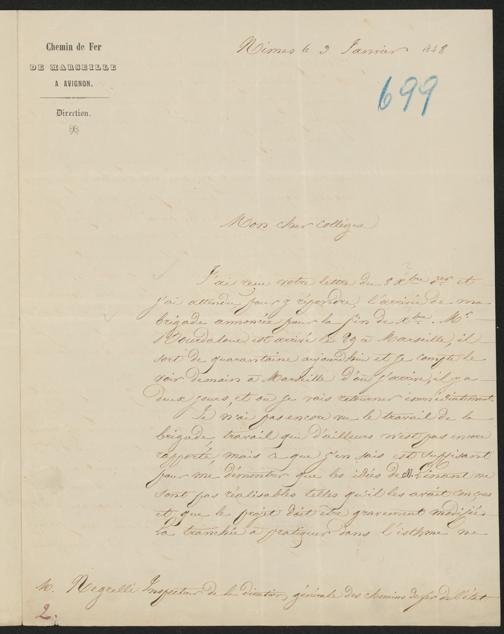 Chemin de Fer
DE MARSEILLE
A AVIGNON.
Direction.
Nimes le 3 Janvier 1848
699
Mon cher collègue
J'ai reçu votre lettre du 8 Xbre der et
j'ai attendu pour y répondre, l'arrivée de ma
brigade annoncée pour la fin de Xbre. Mr
Bourdaloue est arrivé le 29 à Marseille, il
sort de quarantaine aujourd'hui et je compte le
voir demain à Marseille d'où j'arrive, il y a
deux jours, et où je vais retourner immédiatement.
Je n'ai pas encore vu le travail de la
brigade, travail qui d'ailleurs n'est pas encore
rapporté, mais ce que j'en sais est suffisant
pour me démontrer que les idées de Mr Linant ne
sont pas réalisables telles qu'il les avait conçues
et que le projet doit être gravement modifié.
La tranchée à pratiquer dans l'isthme ne
M. Negrelli Inspecteur de la direction générale des chemins de fer de l'état
2.